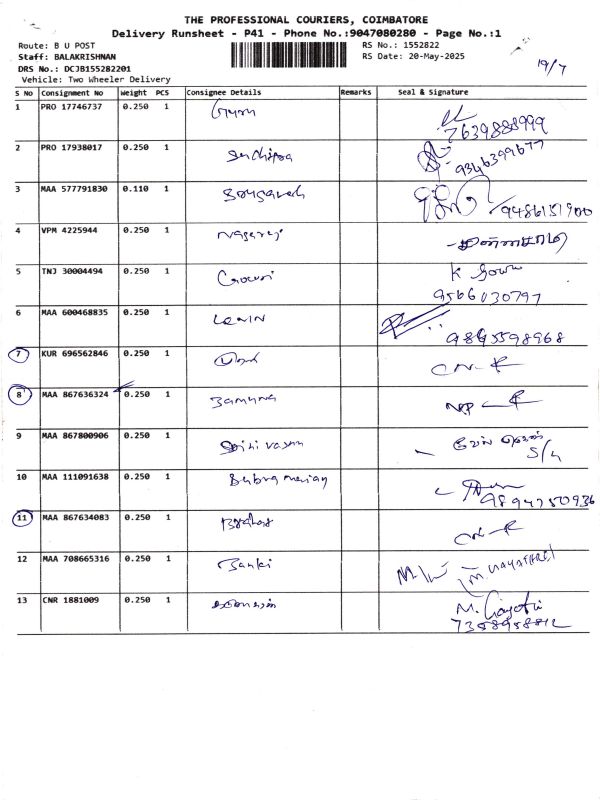 THE PROFESSIONAL COURIERS, COIMBATORE
Delivery Runsheet - P41 - Phone No.:9047080280 - Page No.:1
Route: B U POST
RS No.: 1552822
Staff: BALAKRISHNAN
RS Date: 20-May-2025
19/7
DRS No.: DCJB155282201
Vehicle: Two Wheeler Delivery
S No Consignment No Weight PCS Consignee Details Remarks Seal & Signature
1 PRO 17746737 0.250 1 Guru
7639888999
2 PRO 17938017 0.250 1
9346399677
3 MAA 577791830 0.110 1
9486151900
4 VPM 4225944 0.250 1 Nagaraj
5 TNJ 30004494 0.250 1 Gowri K Gowri
9566030797
6 MAA 600468835 0.250 1 LENIN
9865598968
7 KUR 696562846 0.250 1 CN-R
8 MAA 867636324 0.250 1 Jamuna
9 MAA 867800906 0.250 1 Srinivasan
S/u
10 MAA 111091638 0.250 1 Subramanian
9894750936
11 MAA 867634083 0.250 1 CN-R
12 MAA 708665316 0.250 1 Janki M. GAYATHRI
13 CNR 1881009 0.250 1 M. Gayatri
7358958812